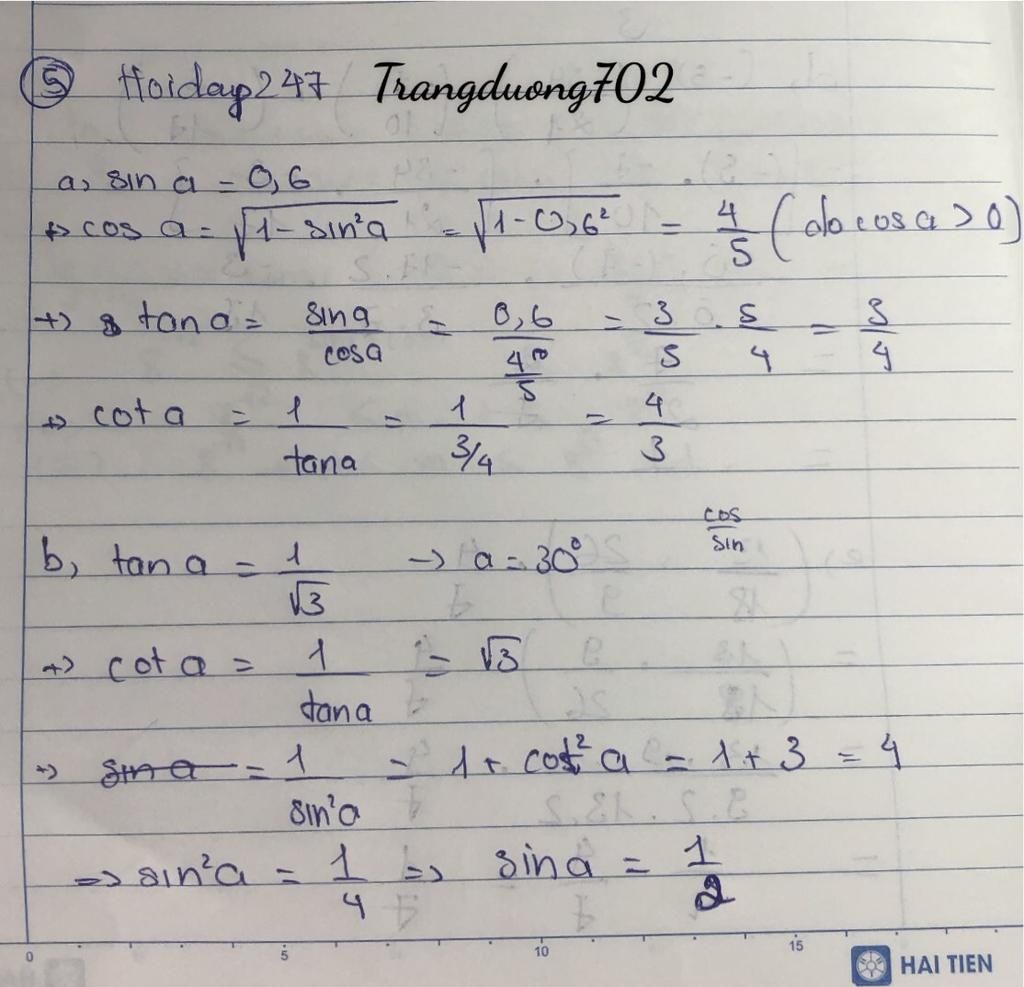 ⑤ Hoidap247 Trangduong702
a, sin a = 0,6
+> cos a = √(1 - sin²a) = √(1 - 0,6²) = 4/5 (do cos a > 0)
+> tan a = sin a / cos a = 0,6 / (4/5) = 3/5 . 5/4 = 3/4
+> cot a = 1/tan a = 1/(3/4) = 4/3
cos/sin
b, tan a = 1/√3 → a = 30°
+> cot a = 1/tan a = √3
+> sin a = 1/sin²a = 1 + cot²a = 1 + 3 = 4
=> sin²a = 1/4 => sin a = 1/2
0 5 10 15
HAI TIEN